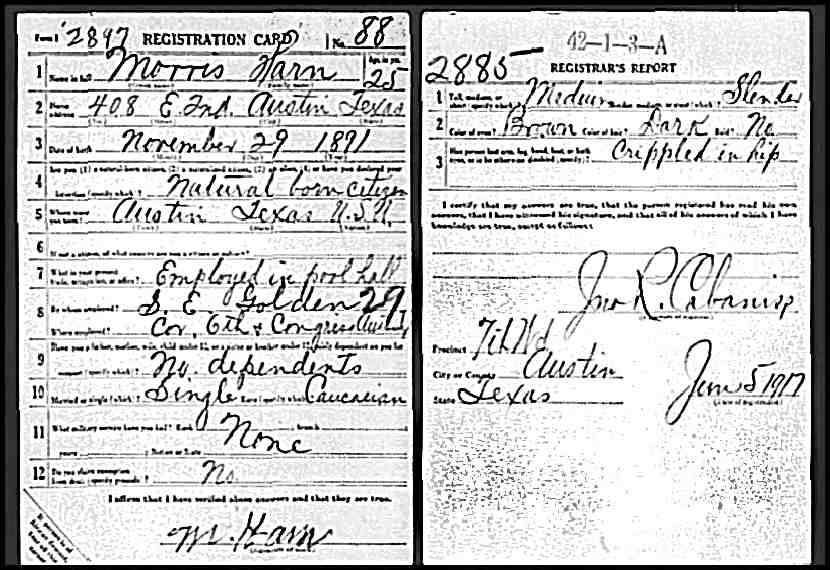 Form 1 2897 REGISTRATION CARD No. 88
1 Name in full Morris Harn Age, in yrs. 25
2 Home address 408 E. 2nd. Austin Texas
3 Date of birth November 29 1891
4 Natural born citizen
5 Where were you born? Austin Texas U.S.A.
6 If not a citizen, of what country are you a citizen or subject?
7 What is your present trade, occupation, or office? Employed in pool hall
8 By whom employed? S. E. Golden 29
Where employed? Cor. 6th & Congress Austin
9 Have you a father, mother, wife, child under 12, or a sister or brother under 12, solely dependent on you for
support (specify which)? No dependents
10 Married or single (which)? Single Race (specify which)? Caucasian
11 What military service have you had? Rank None branch
years Nation or State
12 Do you claim exemption from draft (specify grounds)? No
I affirm that I have verified above answers and that they are true.
M. Harn
2885 42-1-3-A
REGISTRAR'S REPORT
1 Tall, medium, or short (specify which)? Medium Slender, medium, or stout (which)? Slender
2 Color of eyes? Brown Color of hair? Dark Bald? No
3 Has person lost arm, leg, hand, foot, or both eyes, or is he otherwise disabled (specify)? Crippled in hip
I certify that my answers are true, that the person registered has read his own
answers, that I have witnessed his signature, and that all of his answers of which I have
knowledge are true, except as follows:
Jno R. Cabaniss
Precinct 7th Wd
City or County Austin
State Texas
June 5 1917